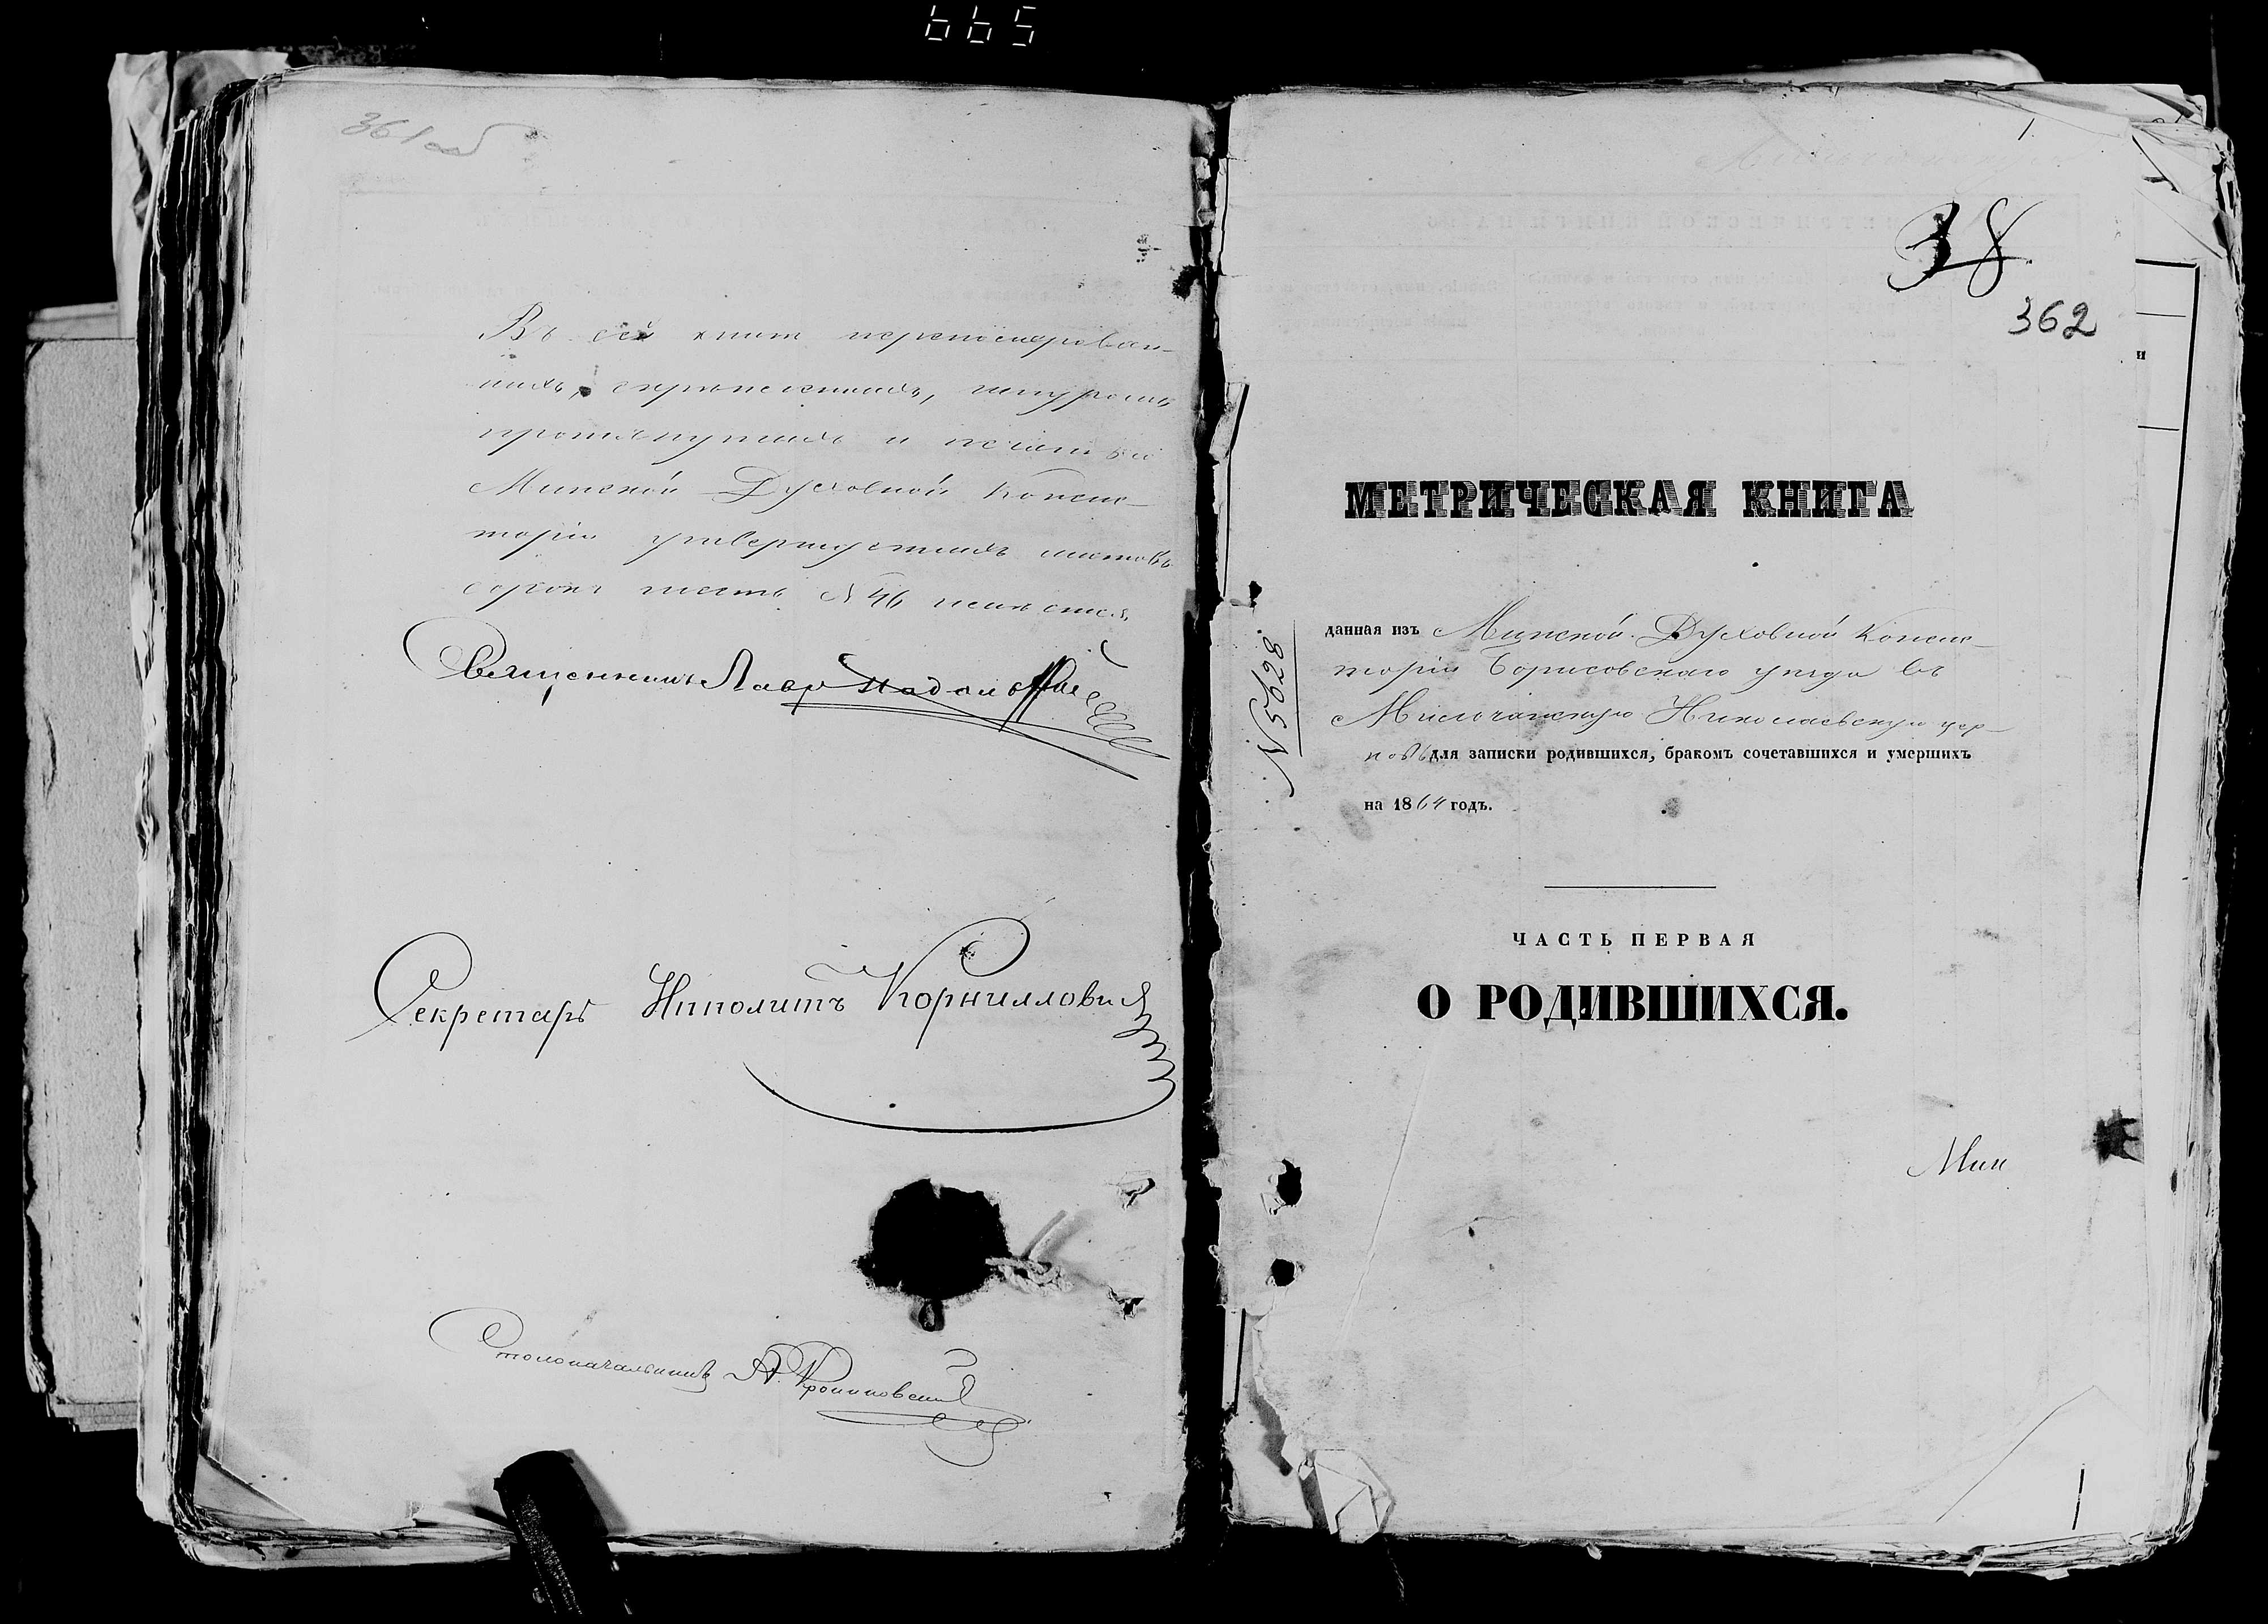 665
361 об
Въ сей книгѣ перенумерован-
ныхъ, скрѣпленныхъ, шнуромъ
протянутыхъ и печатью
Минской Духовной Консис-
торіи утвержденныхъ листовъ
сорокъ шесть N 46
Священникъ Лавр
Секретарь Иполитъ Корниловичъ
Столоначальникъ А.
1.
38
362
МЕТРИЧЕСКАЯ КНИГА
N 5628
данная изъ Минской Духовной Консис-
торіи Борисовскаго уѣзда въ
Мильчанскую Николаевскую цер-
ковь для записки родившихся, бракомъ сочетавшихся и умершихъ
на 1864 годъ.
ЧАСТЬ ПЕРВАЯ
О РОДИВШИХСЯ.
Мин